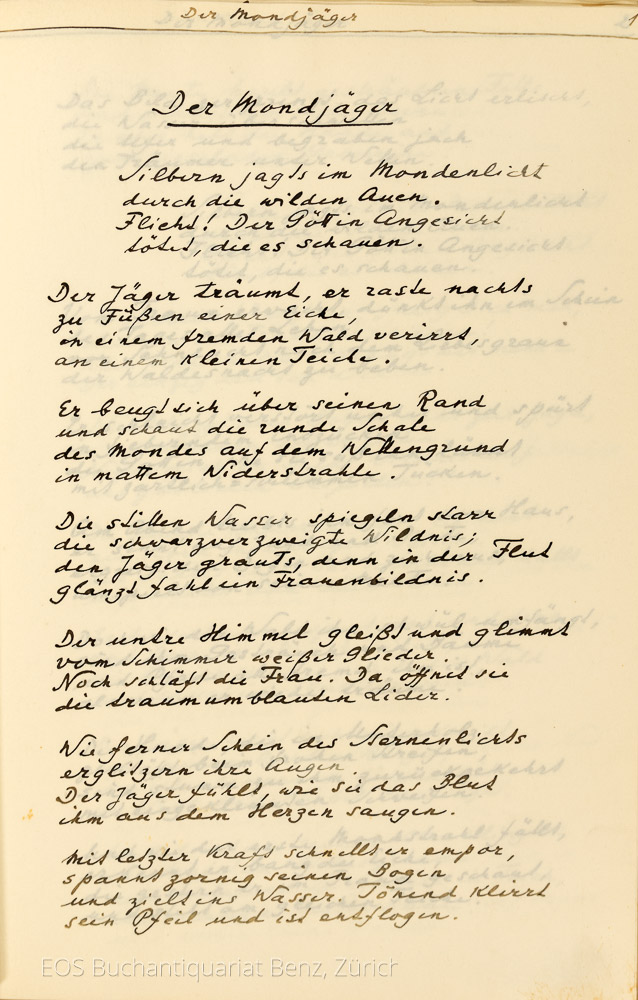 Der Mondjäger
1
Der Mondjäger
Silbern jagts im Mondenlicht
durch die wilden Auen.
Flieht! Der Göttin Angesicht
tötet, die es schauen.
Der Jäger träumt, er raste nachts
zu Füßen einer Eiche,
in einem fremden Wald verirrt,
an einem kleinen Teiche.
Er beugt sich über seinen Rand
und schaut die runde Schale
des Mondes auf dem Wellengrund
in mattem Widerstrahle.
Die stillen Wasser spiegeln starr
die schwarzverzweigte Wildnis;
den Jäger grauts, denn in der Flut
glänzt fahl ein Frauenbildnis.
Der untre Himmel gleißt und glimmt
vom Schimmer weißer Glieder.
Noch schläft die Frau. Da öffnet sie
die traumumblauten Lider.
Wie ferner Schein des Sternenlichts
erglitzern ihre Augen.
Der Jäger fühlt, wie sie das Blut
ihm aus dem Herzen saugen.
Mit letzter Kraft schnellt er empor,
spannt zornig seinen Bogen
und zielt ins Wasser. Tönend klirrt
sein Pfeil und ist entflogen.
EOS Buchantiquariat Benz, Zürich